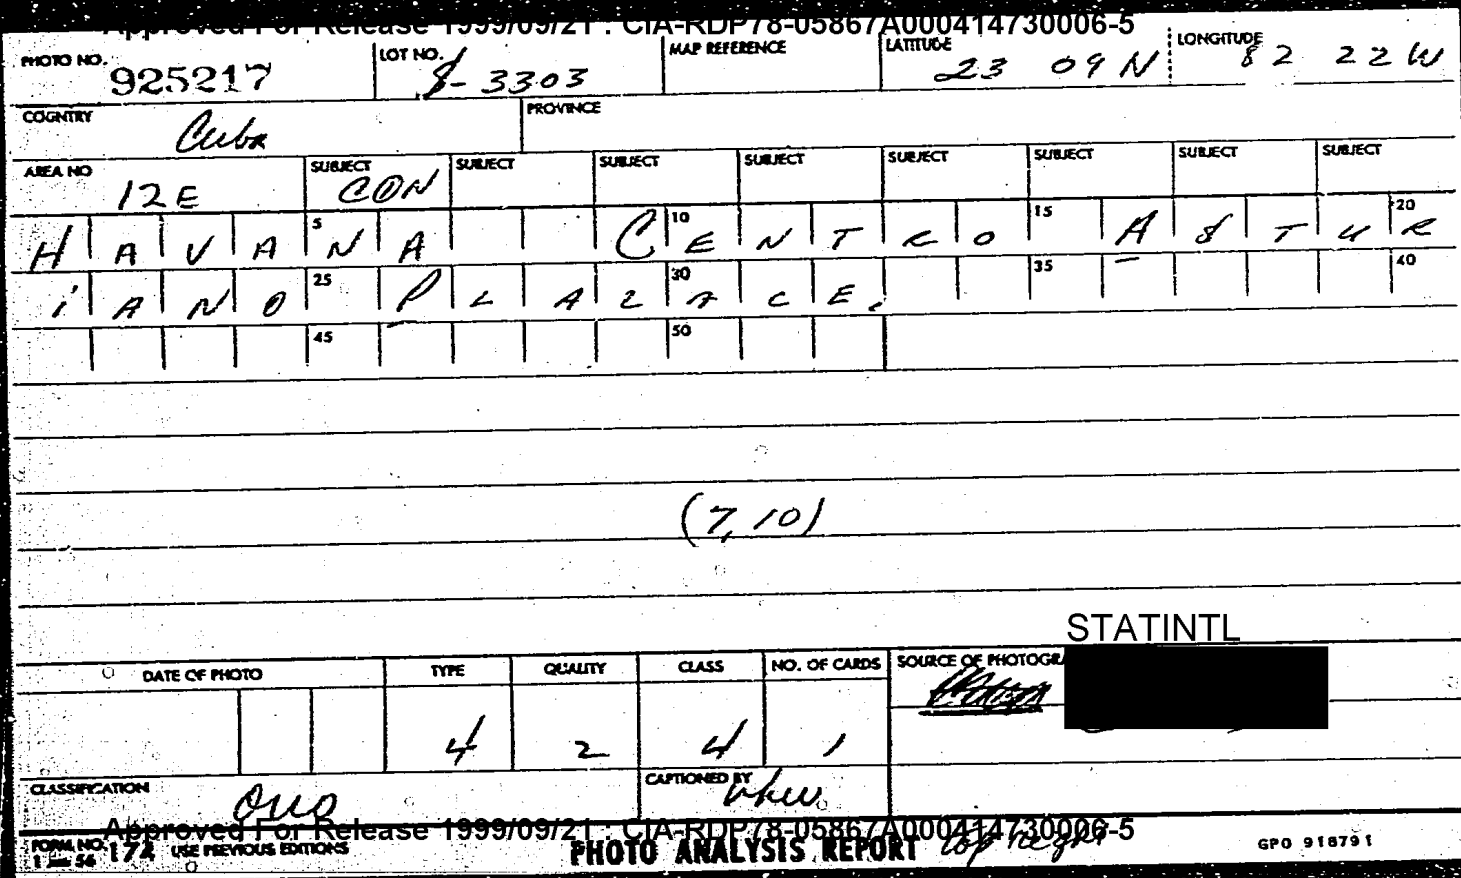 Approved For Release 1999/09/21 : CIA-RDP78-05867A000414730006-5
PHOTO NO. 925217 LOT NO. 8-3303 MAP REFERENCE LATITUDE 23 09 N LONGITUDE 82 22 W
COUNTRY Cuba PROVINCE
AREA NO 12E SUBJECT CON SUBJECT SUBJECT SUBJECT SUBJECT SUBJECT SUBJECT SUBJECT
5 10 15 20
HAVANA CENTRO ASTUR
25 30 35 40
IANO PLAZACE.
45 50
(7,10)
STATINTL
DATE OF PHOTO TYPE QUALITY CLASS NO. OF CARDS SOURCE OF PHOTOGRA
4 2 4 1
CLASSIFICATION OUO CAPTIONED BY
Approved For Release 1999/09/21 : CIA-RDP78-05867A000414730006-5
FORM NO. 172 USE PREVIOUS EDITIONS PHOTO ANALYSIS REPORT top GPO 918791
1 56